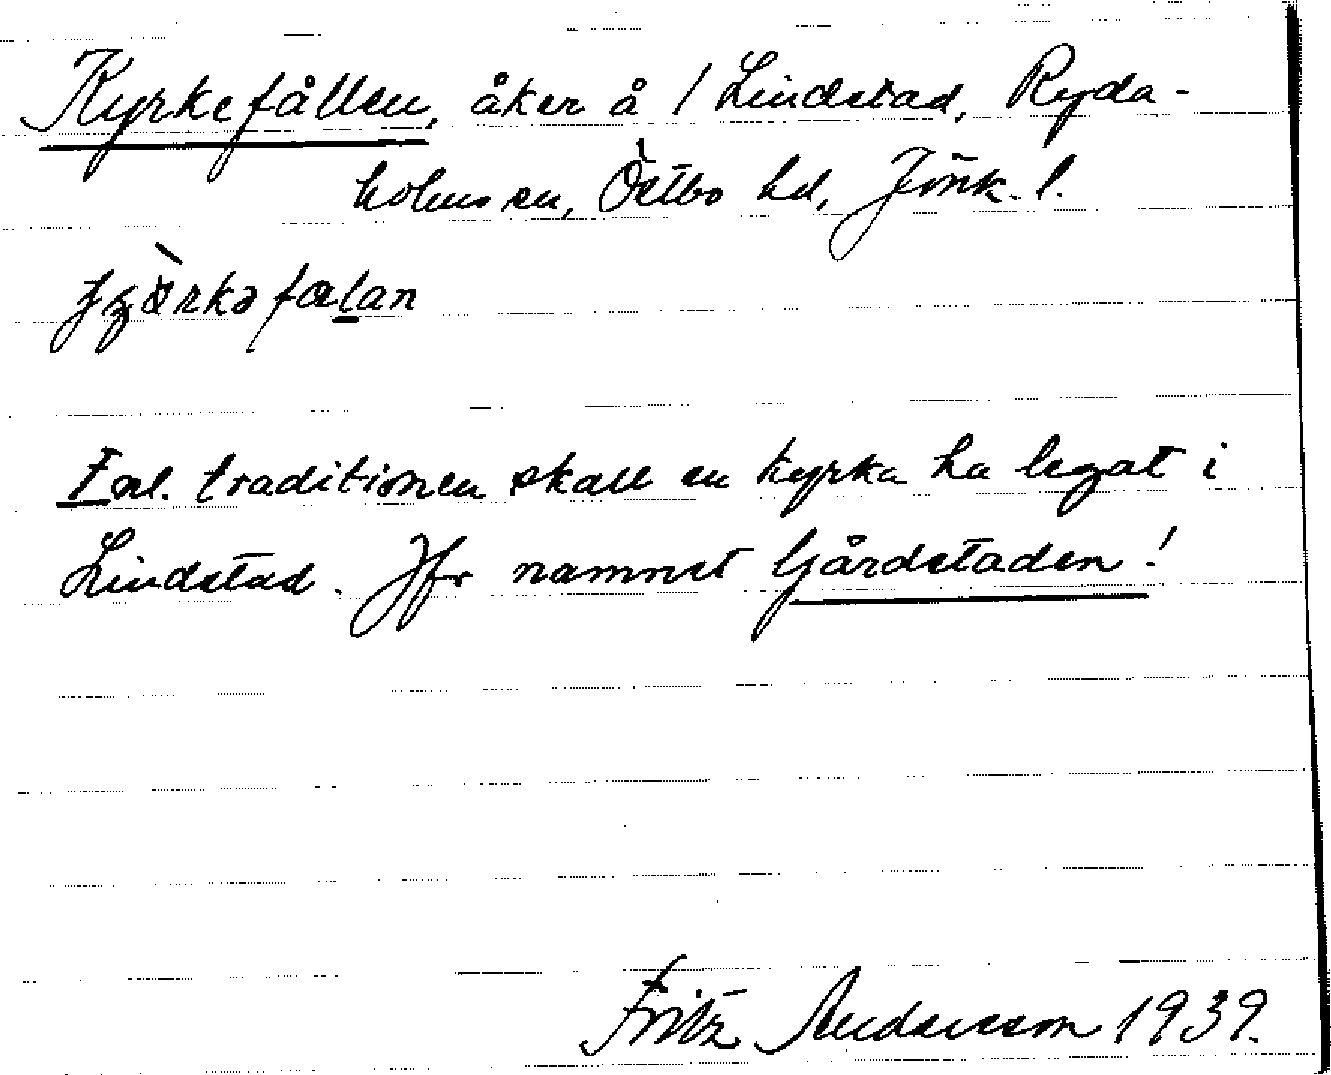 Kyrkefållen, åker å / Lindstad, Ryda-
holms sn, Östbo hd, Jönk. l.
Enl. traditionen skall en kyrka ha legat i
Lindstad. Jfr namnet Gårdstaden!
Fritz Andersson 1939.